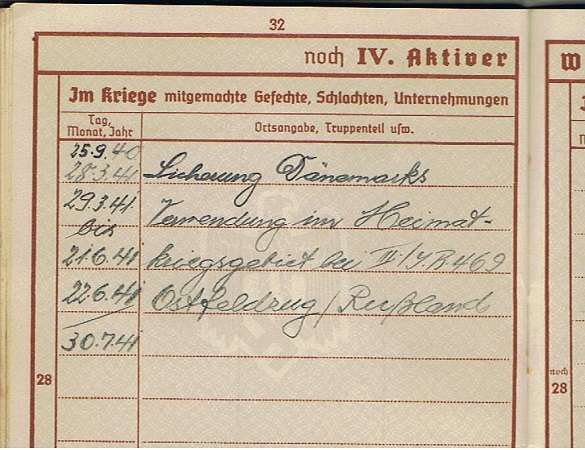 32
noch IV. Aktiver
W
Im Kriege mitgemachte Gefechte, Schlachten, Unternehmungen
Tag,
Monat, Jahr
Ortsangabe, Truppenteil usw.
25.9.40
28.3.41 Sicherung Dänemarks
29.3.41 Verwendung im Heimat-
bis
21.6.41 kriegsgebiet bei III./J.R 469
22.6.41 Ostfeldzug / Rußland
30.7.41
28
noch
28